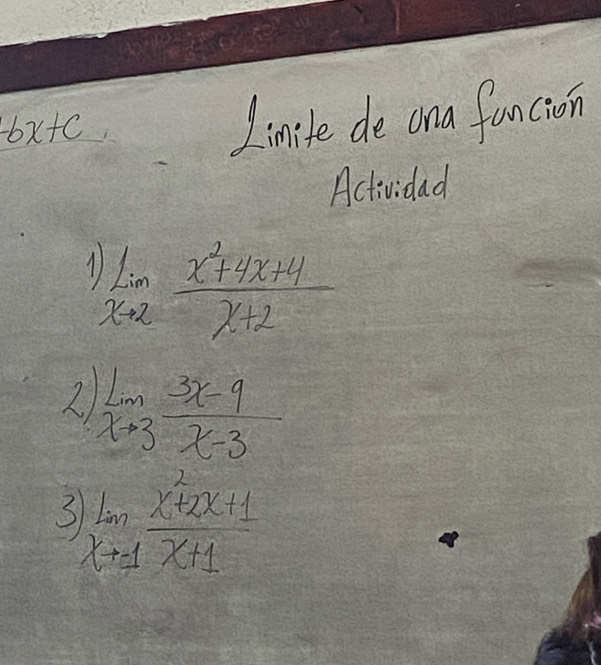 +bx+c
Limite de una función
Actividad
1) Lim x→2 (x²+4x+4)/(x+2)
2) Lim x→3 (3x-9)/(x-3)
3) Lim x→-1 (x²+2x+1)/(x+1)